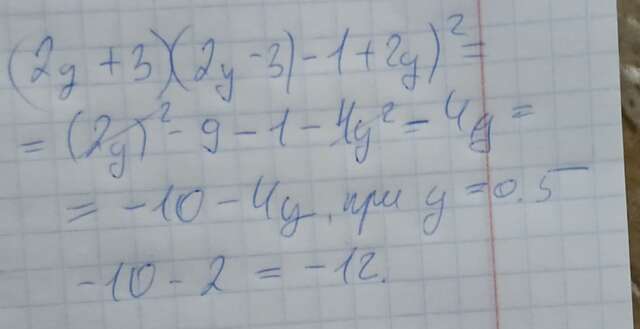 (2y + 3)(2y - 3) - 1 + 2y)² =
= (2y)² - 9 - 1 - 4y² - 4y =
= -10 - 4y, при y = 0.5
-10 - 2 = -12.